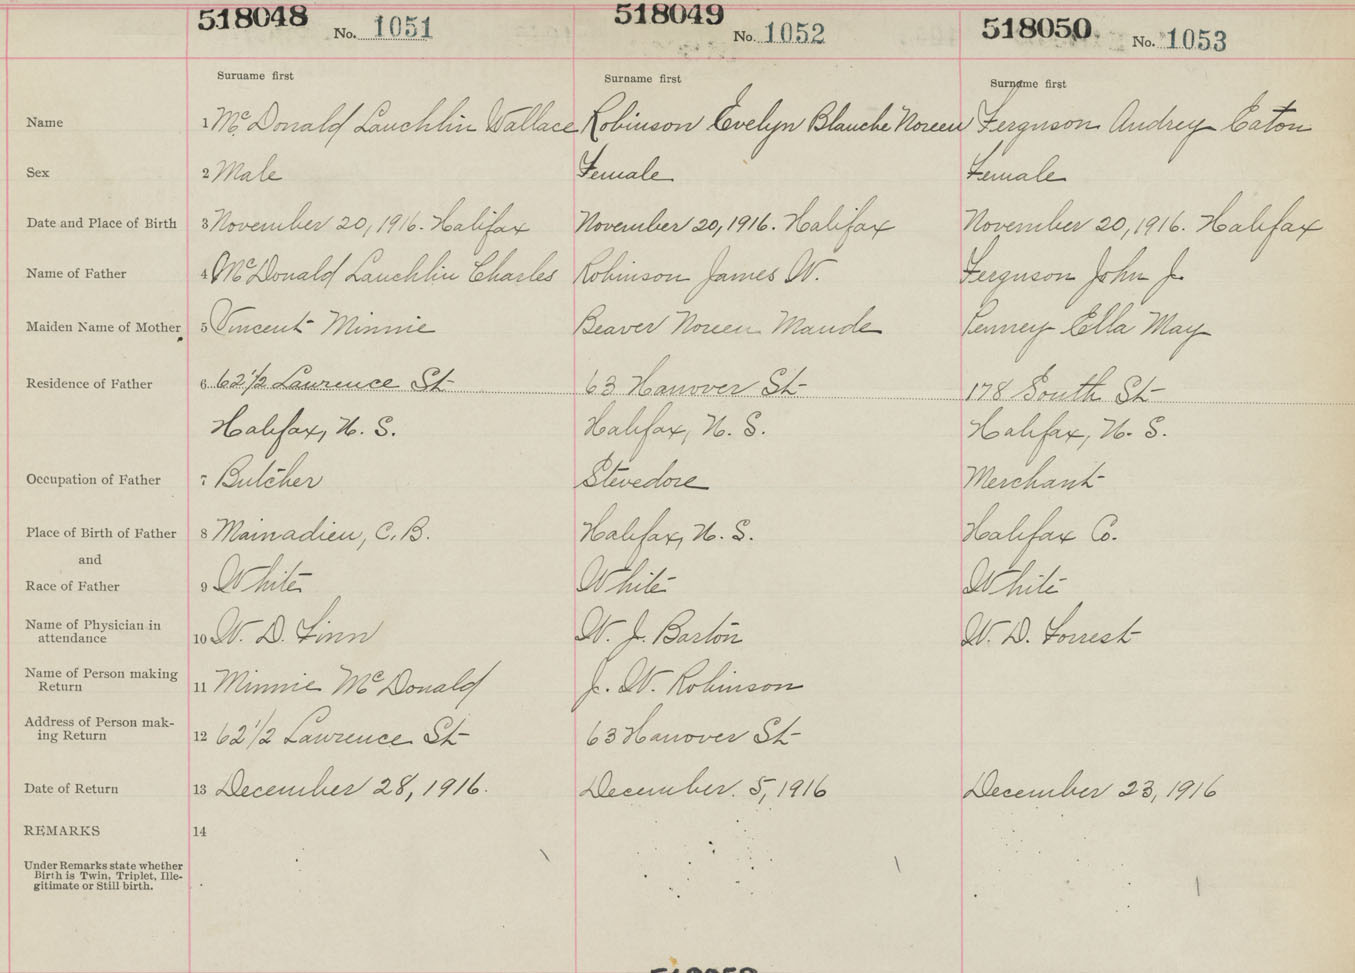 518048 No. 1051 518049 No. 1052 518050 No. 1053
Surname first Surname first Surname first
Name 1 McDonald Lauchlin Wallace Robinson Evelyn Blanche Noreen Ferguson Audrey Eaton
Sex 2 Male Female Female
Date and Place of Birth 3 November 20, 1916. Halifax November 20, 1916. Halifax November 20, 1916. Halifax
Name of Father 4 McDonald Lauchlin Charles Robinson James W. Ferguson John J.
Maiden Name of Mother 5 Vincent Minnie Beaver Noreen Maude Penney Ella May
Residence of Father 6 62 1/2 Lawrence St 63 Hanover St 178 South St
Halifax, N. S. Halifax, N. S. Halifax, N. S.
Occupation of Father 7 Butcher Stevedore Merchant
Place of Birth of Father 8 Mainadieu, C. B. Halifax, N. S. Halifax Co.
and
Race of Father 9 White White White
Name of Physician in
attendance 10 W. D. Finn W. J. Barton W. D. Forrest
Name of Person making
Return 11 Minnie McDonald J. W. Robinson
Address of Person mak-
ing Return 12 62 1/2 Lawrence St 63 Hanover St
Date of Return 13 December 28, 1916. December 5, 1916 December 23, 1916
REMARKS 14
Under Remarks state whether
Birth is Twin, Triplet, Ille-
gitimate or Still birth.